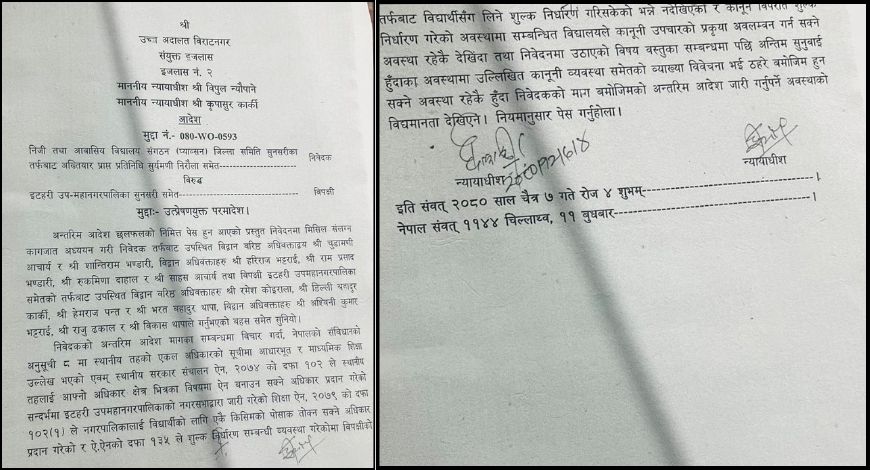 श्री
उच्च अदालत बिराटनगर
संयुक्त इजलास
इजलास नं. २
माननीय न्यायाधीश श्री विपुल न्यौपाने
माननीय न्यायाधीश श्री कृपासुर कार्की
आदेश
मुद्दा नं.- 080-WO-0593
निजी तथा आवासिय विद्यालय संगठन (प्याब्सन) जिल्ला समिति सुनसरीका
तर्फबाट अख्तियार प्राप्त प्रतिनिधि सुर्यमणी निरौला समेत------------------- निवेदक
विरुद्ध
इटहरी उप-महानगरपालिका सुनसरी समेत--------------------------- बिपक्षी
मुद्दाः- उत्प्रेषणयुक्त परमादेश।
अन्तरिम आदेश छलफलको निमित्त पेस हुन आएको प्रस्तुत निवेदनमा मिसिल संलग्न
कागजात अध्ययन गरी निवेदक तर्फबाट उपस्थित विद्वान वरिष्ठ अधिवक्ताद्वय श्री चुडामणी
आचार्य र श्री शान्तिराम भण्डारी, विद्वान अधिवक्ताहरु श्री हरिराज भट्टराई, श्री राम प्रसाद
भण्डारी, श्री रुकमिणा दाहाल र श्री साहस आचार्य तथा विपक्षी इटहरी उपमहानगरपालिका
समेतको तर्फबाट उपस्थित विद्वान वरिष्ठ अधिवक्ताहरु श्री रमेश कोइराला, श्री डिल्ली बहादुर
कार्की, श्री हेमराज पन्त र श्री भरत बहादुर थापा, विद्वान अधिवक्ताहरु श्री अश्विनी कुमार
भट्टराई, श्री राजु ढकाल र श्री विकास थापाले गर्नुभएको बहस समेत सुनियो।
निवेदकको अन्तरिम आदेश मागका सम्बन्धमा बिचार गर्दा, नेपालको संविधानको
अनुसूची ८ मा स्थानीय तहको एकल अधिकारको सूचीमा आधारभूत र माध्यमिक शिक्षा
उल्लेख भएको एवम् स्थानीय सरकार संचालन ऐन, २०७४ को दफा १०२ ले स्थानीय
तहलाई आफ्नो अधिकार क्षेत्र भित्रका विषयमा ऐन बनाउन सक्ने अधिकार प्रदान गरेको
सन्दर्भमा इटहरी उपमहानगरपालिकाको नगरसभाद्वारा जारी गरेको शिक्षा ऐन, २०७९ को दफा
१०२(१) ले नगरपालिकालाई विद्यार्थीको लागि एकै किसिमको पोसाक तोक्न सक्ने अधिकार
प्रदान गरेको र ऐ.ऐनको दफा १३५ ले शुल्क निर्धारण सम्बन्धी व्यवस्था गरेकोमा बिपक्षीको
तर्फबाट विद्यार्थीसँग लिने शुल्क निर्धारण गरिसकेको भन्ने नदेखिएको र कानून विपरीत शुल्क
निर्धारण गरेको अवस्थामा सम्बन्धित विद्यालयले कानूनी उपचारको प्रकृया अवलम्वन गर्न सक्ने
अवस्था रहेकै देखिदा तथा निवेदनमा उठाएको विषय वस्तुका सम्बन्धमा पछि अन्तिम सुनुवाई
हुँदाका अवस्थामा उल्लिखित कानूनी व्यवस्था समेतको व्याख्या विवेचना भई ठहरे बमोजिम हुन
सक्ने अवस्था रहेकै हुँदा निवेदकको माग बमोजिमको अन्तरिम आदेश जारी गर्नुपर्ने अवस्थाको
विद्यमानता देखिएन। नियमानुसार पेस गर्नुहोला।
न्यायाधीश
न्यायाधीश
इति संवत् २०८० साल चैत्र ७ गते रोज ४ शुभम्------------------------------।
नेपाल संवत् ११४४ चिल्लाथ्व, ११ बुधबार-----------------------------------।